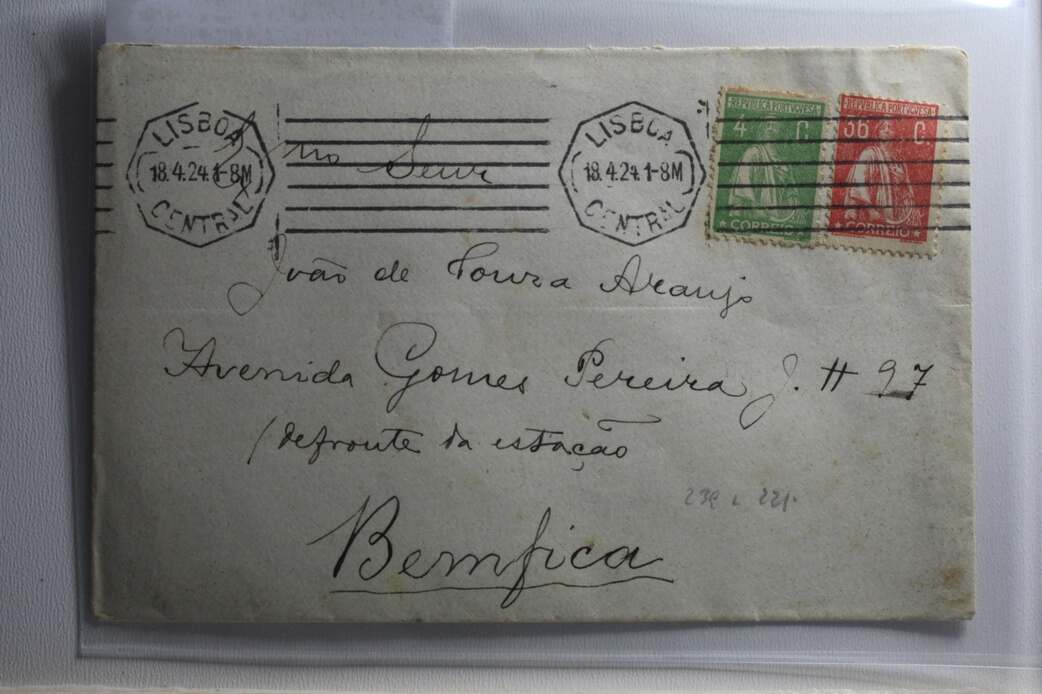 LISBOA
18.4.24.1-8M
CENTRAL
LISBOA
18.4.24.1-8M
CENTRAL
REPVBLICA PORTVGVESA
4 C.
CORREIO
REPVBLICA PORTVGVESA
36 C.
CORREIO
Exmo Senr
João de Souza Araujo
Avenida Gomes Pereira J. H 97
(defronte da estação
Bemfica